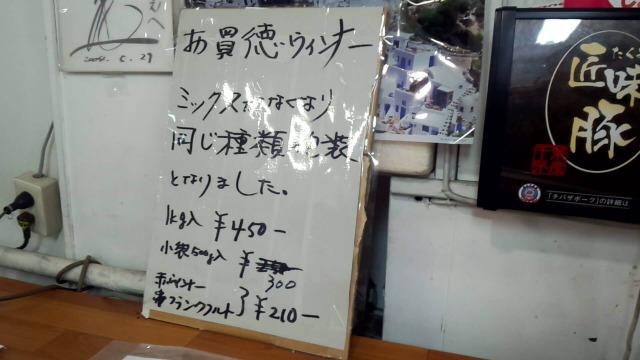 お買徳ウィンナー
ミックスがなくなり
同じ種類包装
となりました。
1kg入 ¥450-
小袋500g入 ¥
300
赤ウィンナー
フランクフルト } ¥210-
へ
2004. 6. 29
たく
匠味
豚
「チバザポーク」の詳細は